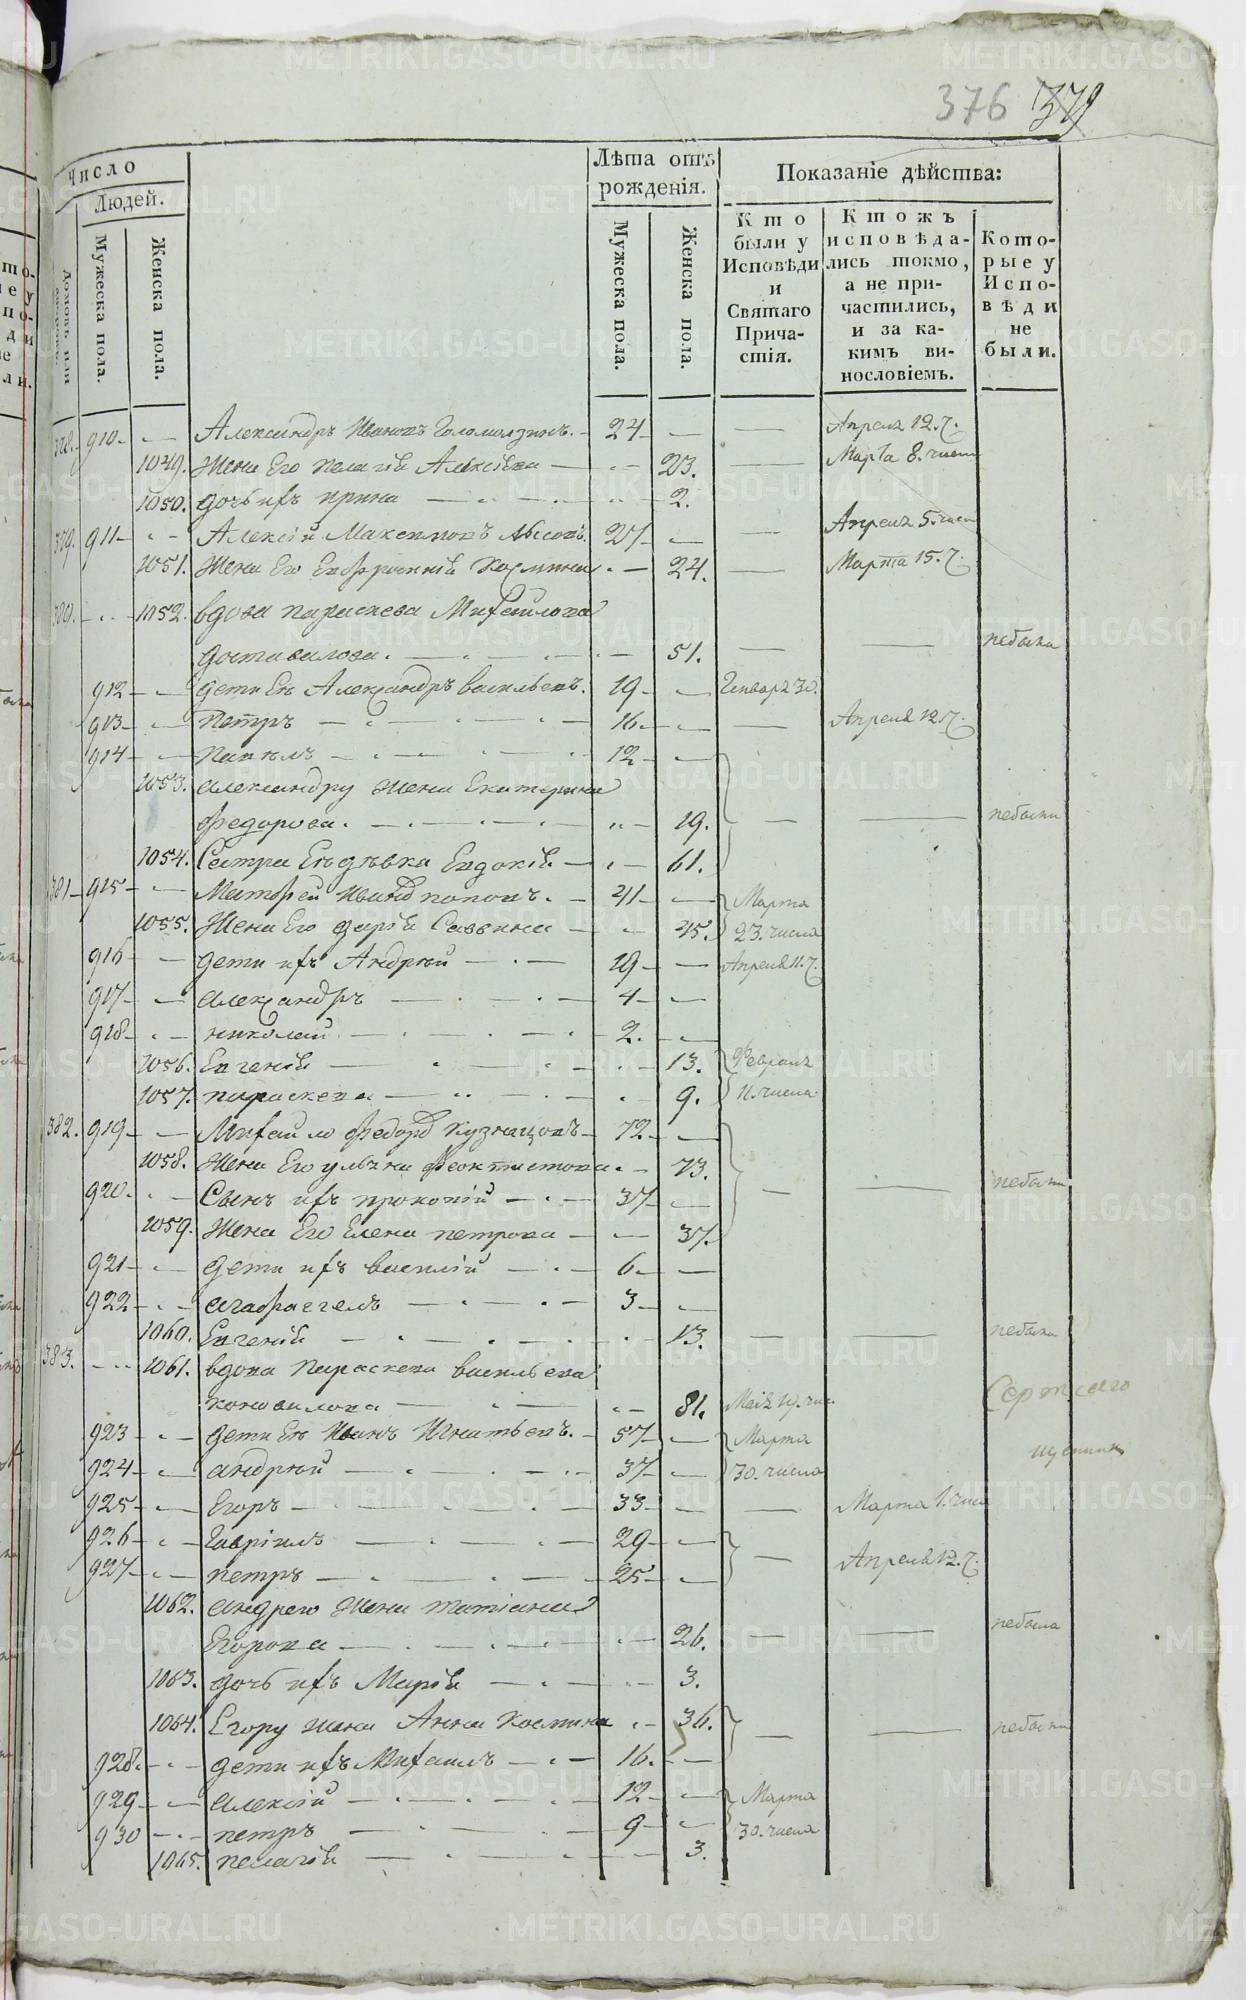 376 379
Число
Людей.
Домовъ или
Мужеска пола.
Женска пола.
Лѣта отъ рожденія.
Мужеска пола.
Женска пола.
Показаніе дѣйства:
Кто были у Исповѣди и Святаго Причастія.
Ктожъ исповѣдались токмо, а не причастились, и за какимъ винословіемъ.
Которые у Исповѣди не были.
378. 910 Александръ Иванов 24 Апреля 12. ч.
1049. Жена Его Пелагія Алексіева 23. Марта 8. числа
1050. дочь ихъ Ирина 2.
379. 911 Алексій Максимовъ Лысовъ. 27 Апреля 5. числа
1051. Жена Его Евфросинія Космина 24. Марта 15. ч.
380. 1052. вдова Параскева Михаилова
Доставалова. 51. небыла
912 дети Ея Александръ Васильевъ. 19 Генваря 30.
913 Петръ 16 Апреля 12. ч.
914 Павелъ 12
1053. Александру жена Екатерина
Федорова. 19. небыли
1054. Сестра Ея девка Евдокія 61.
381 915 Матфей Иванов Попов. 41 Марта
1055. Жена Его Дарія Саввина 45. 23. числа
916 дети ихъ Андрей 19 Апреля 11. ч.
917 Александръ 4
918 Николай 2.
1056. Евгенія 13. Февраля
1057. Параскева 9. 11. числа
382. 919 Михайло Федоров Кузнецовъ 72
1058. Жена Его Ульяна Феоктистова 73.
920. Сынъ ихъ Прокопій 37 небыли
1059. Жена Его Елена Петрова 37.
921 дети ихъ Василій 6.
922 3
1060. Евгенія 13. небыли
383. 1061. вдова Параскева Васильева
Коновалова 81. Маія 19. чис.
923 дети Ея Иванъ Игнатьевъ. 57 Марта
924 Андрей 37 30. числа
925 Егоръ 33 Марта 1. числ
926 Гавріилъ 29
927 Петръ 25 Апреля 12. ч.
1062. Андрею жена Татіана
Егорова 26. небыла
1063. дочь ихъ Марія 3.
1064. Егору жена Анна Космина 36.
928. дети ихъ Михаилъ 16. небыли
929 Алексій 12 Марта
930 Петръ 9 30. числа
1065. Пелагія 3.
METRIKI.GASO-URAL.RU